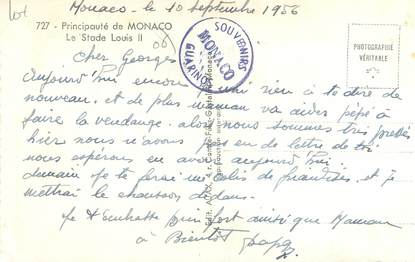 Monaco - le 10 Septembre 1956
727 - Principauté de MONACO
Le Stade Louis II
SOUVENIRS
MONACO
GUARINO
PHOTOGRAPHIE
VÉRITABLE
Cher Georges
aujourd'hui encore rien à te dire de
nouveau, et de plus maman va aider pépé à
faire la vendange. alors nous sommes très pressés
hier nous n'avons pas eu de lettre de toi
nous espérons en avoir aujourd'hui.
demain je te ferai un colis de friandises, et je
mettrai le chausson dedans.
Je t'embrasse bien fort ainsi que Maman
à Bientôt papa